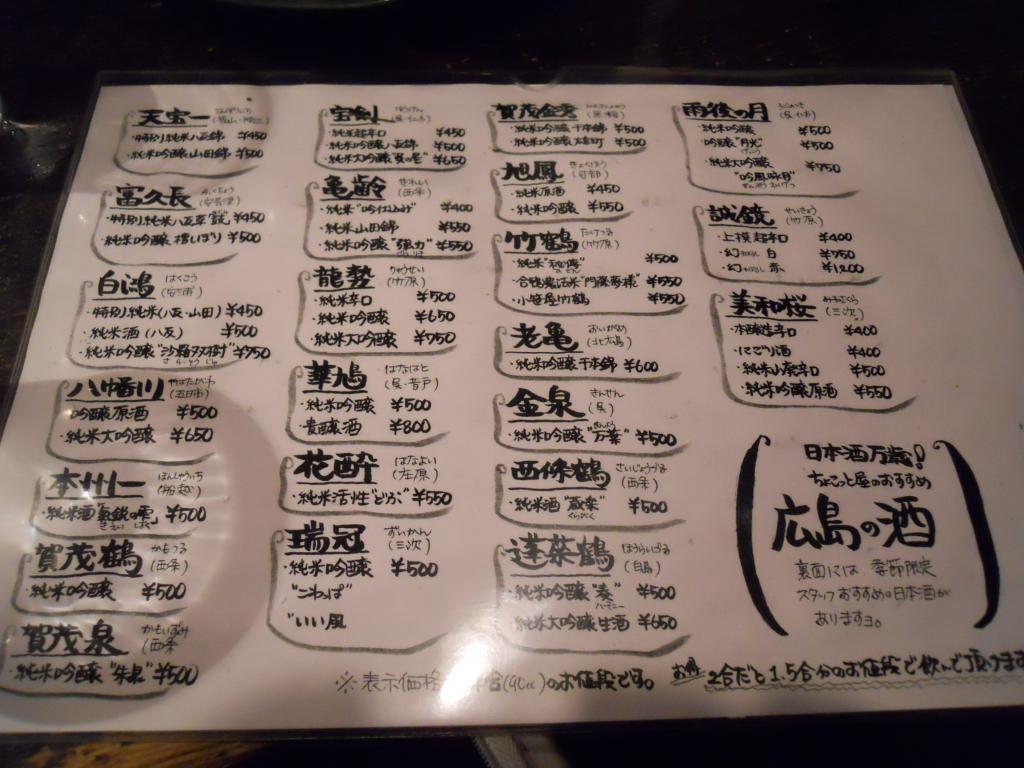 天宝一
・特別純米八反錦 ¥450
・純米吟醸 山田錦 ¥500
富久長 (安芸津)
・特別純米八反草 ¥450
・純米吟醸 槽しぼり ¥500
白鴻 はくこう (安芸津)
・特別純米(八反・山田) ¥450
・純米酒(八反) ¥500
・純米吟醸"沙羅双樹" ¥750
さらそうじゅ
八幡川 やはたがわ (五日市)
・吟醸原酒 ¥500
・純米大吟醸 ¥650
本州一 ほんしゅういち (船越)
・純米酒 ¥500
賀茂鶴 かもつる (西条)
・純米吟醸 ¥500
賀茂泉 かもいずみ (西条
・純米吟醸"朱泉" ¥500
宝剣 ほうけん (呉・仁方)
・純米超辛口 ¥450
・純米吟醸 八反錦 ¥500
・純米大吟醸 ¥650
亀齢 きれい (西条)
・純米"吟仕込み" ¥400
・純米山田錦 ¥550
・純米吟醸"強力" ¥550
龍勢 りゅうせい (竹原)
・純米辛口 ¥500
・純米吟醸 ¥650
・純米大吟醸 ¥750
華鳩 はなはと (呉・音戸)
・純米吟醸 ¥500
・貴醸酒 ¥800
花酔 はなよい (庄原)
・純米活性どぶ" ¥550
瑞冠 ずいかん (三次)
・純米吟醸 ¥500
"こわっぱ"
"いい風
賀茂金秀
・純米吟醸 千本錦 ¥500
・純米吟醸 雄町 ¥500
旭鳳 きょくほう (可部)
・純米原酒 ¥450
・純米吟醸 ¥550
竹鶴 たけつる (竹原)
・純米"秘傳" ¥500
ひでん
・合鴨農法米"門藤夢様" ¥550
・小笹屋竹鶴 ¥550
老亀 おいがめ (北広島)
・純米吟醸 千本錦 ¥600
金泉 きんせん (呉)
・純米吟醸"万葉" ¥500
西條鶴 さいじょうづる (西条)
・純米酒"蔵楽" ¥500
くらがく
蓬莱鶴 ほうらいづる (白島)
・純米吟醸"奏" ¥500
ハーモニー
・純米大吟醸生酒 ¥650
雨後の月 うごのつき (呉・仁方)
・純米吟醸 ¥500
・吟醸"月光" ¥500
げっこう
・純米大吟醸 ¥750
"吟風咏月"
ぎんぷうえいげつ
誠鏡 せいきょう (竹原)
・上撰超辛口 ¥400
・幻 まぼろし 白 ¥750
・幻 まぼろし 赤 ¥1200
美和桜 みわさくら (三次)
・本醸生辛口 ¥400
・にごり酒 ¥400
・純米山廃辛口 ¥500
・純米吟醸原酒 ¥550
日本酒万歳!
ちょこっと屋のおすすめ
広島の酒
裏面には、季節限定
スタッフおすすめの日本酒が
ありますヨ。
※表示価格 合(90cc)のお値段です。
お得 2合だと1.5合分のお値段で飲んで頂けます